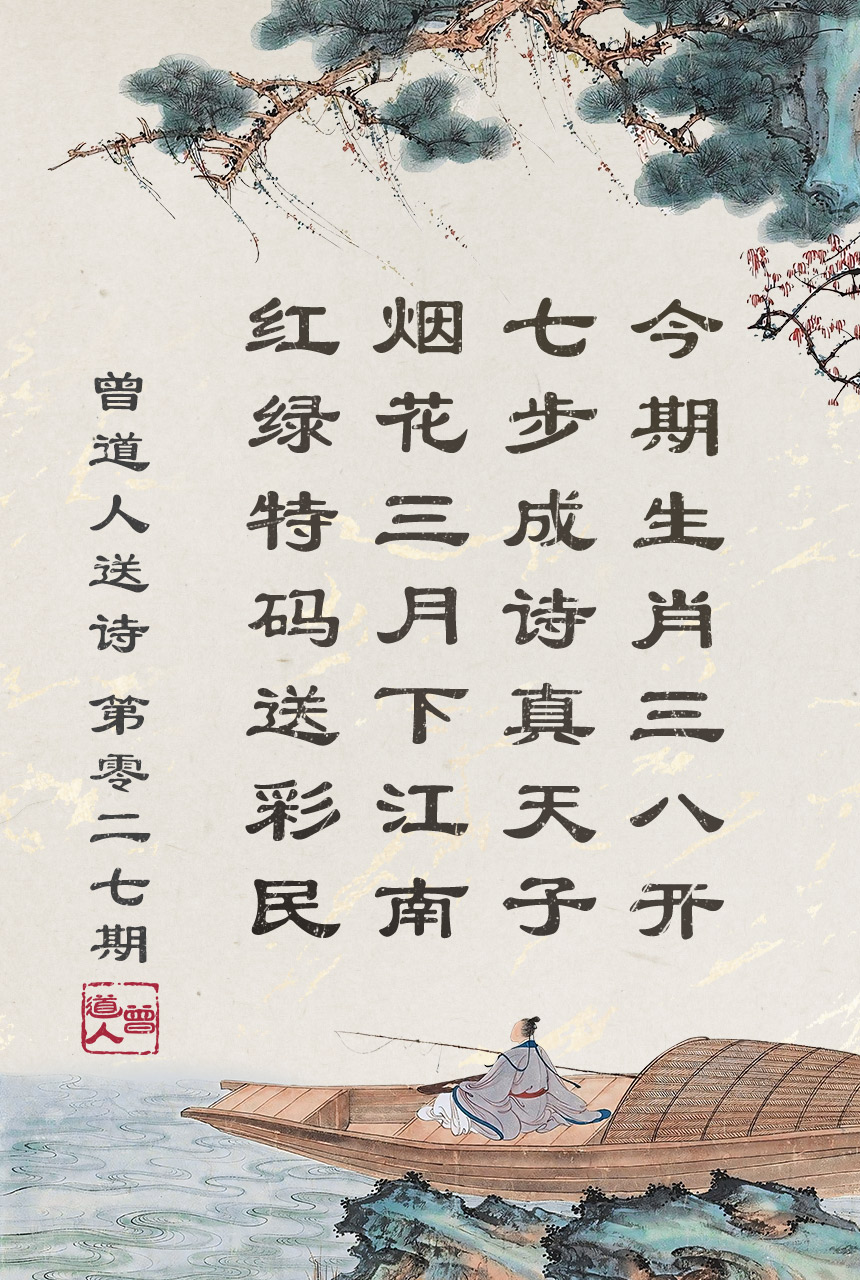 今期生肖三八开
七步成诗真天子
烟花三月下江南
红绿特码送彩民
曾道人送诗 第零二七期
曾道人